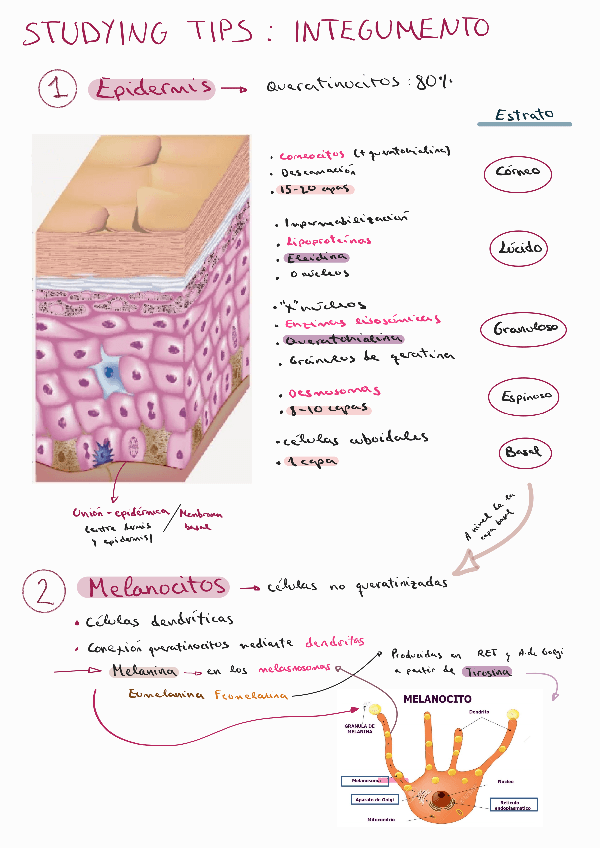 STUDYING TIPS : INTEGUMENTO
1 Epidermis → Queratinocitos : 80%
Estrato
• Corneocitos (+ queratohialina)
• Descamación
• 15-20 capas
Córneo
• Impermeabilización
• Lipoproteínas
• Eleidina
• 0 núcleos
Lúcido
• "X" núcleos
• Enzimas lisosómicas
• Queratohialina
• Gránulos de queratina
Granuloso
• Desmosomas
• 8-10 capas
Espinoso
• células cuboidales
• 1 capa
Basal
Unión - epidérmica / Membrana
(entre dermis basal
y epidermis)
A nivel de la
capa basal
2 Melanocitos → células no queratinizadas
• Células dendríticas
• Conexión queratinocitos mediante dendritas
→ Melanina → en los melanosomas
Eumelanina Feomelanina
Producidas en RET y A. de Golgi
a partir de Tirosina
MELANOCITO
GRANULA DE
MELANINA
Dendrita
Melanosoma
Aparato de Golgi
Mitocondria
Núcleo
Retículo
endoplasmático